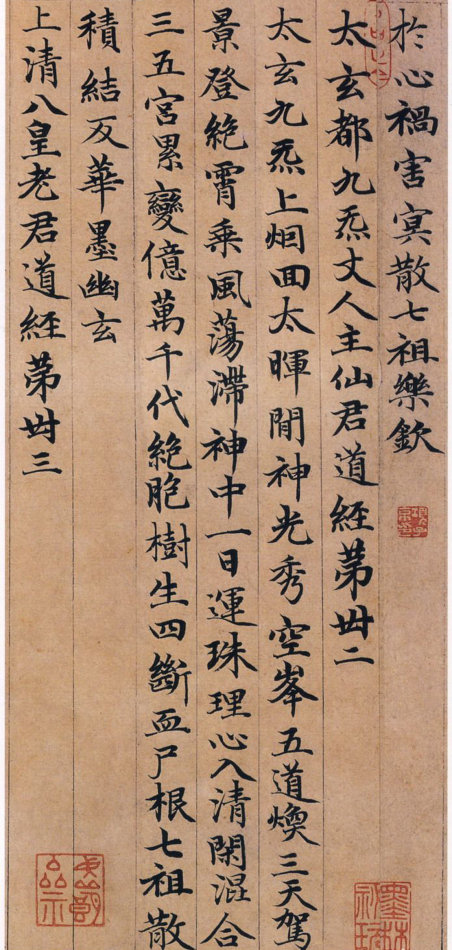 於心禍害冥散七祖樂欽
太玄都九炁丈人主仙君道經苐卌二
太玄九炁上烟回太暉開神光秀空峯五道煥三天駕
景登絶霄乘風蕩滯神中一日運珠理心入清閑混合
三五宮累變億萬千代絶胞樹生四斷血尸根七祖散
積結反華墨幽玄
上清八皇老君道經苐卌三